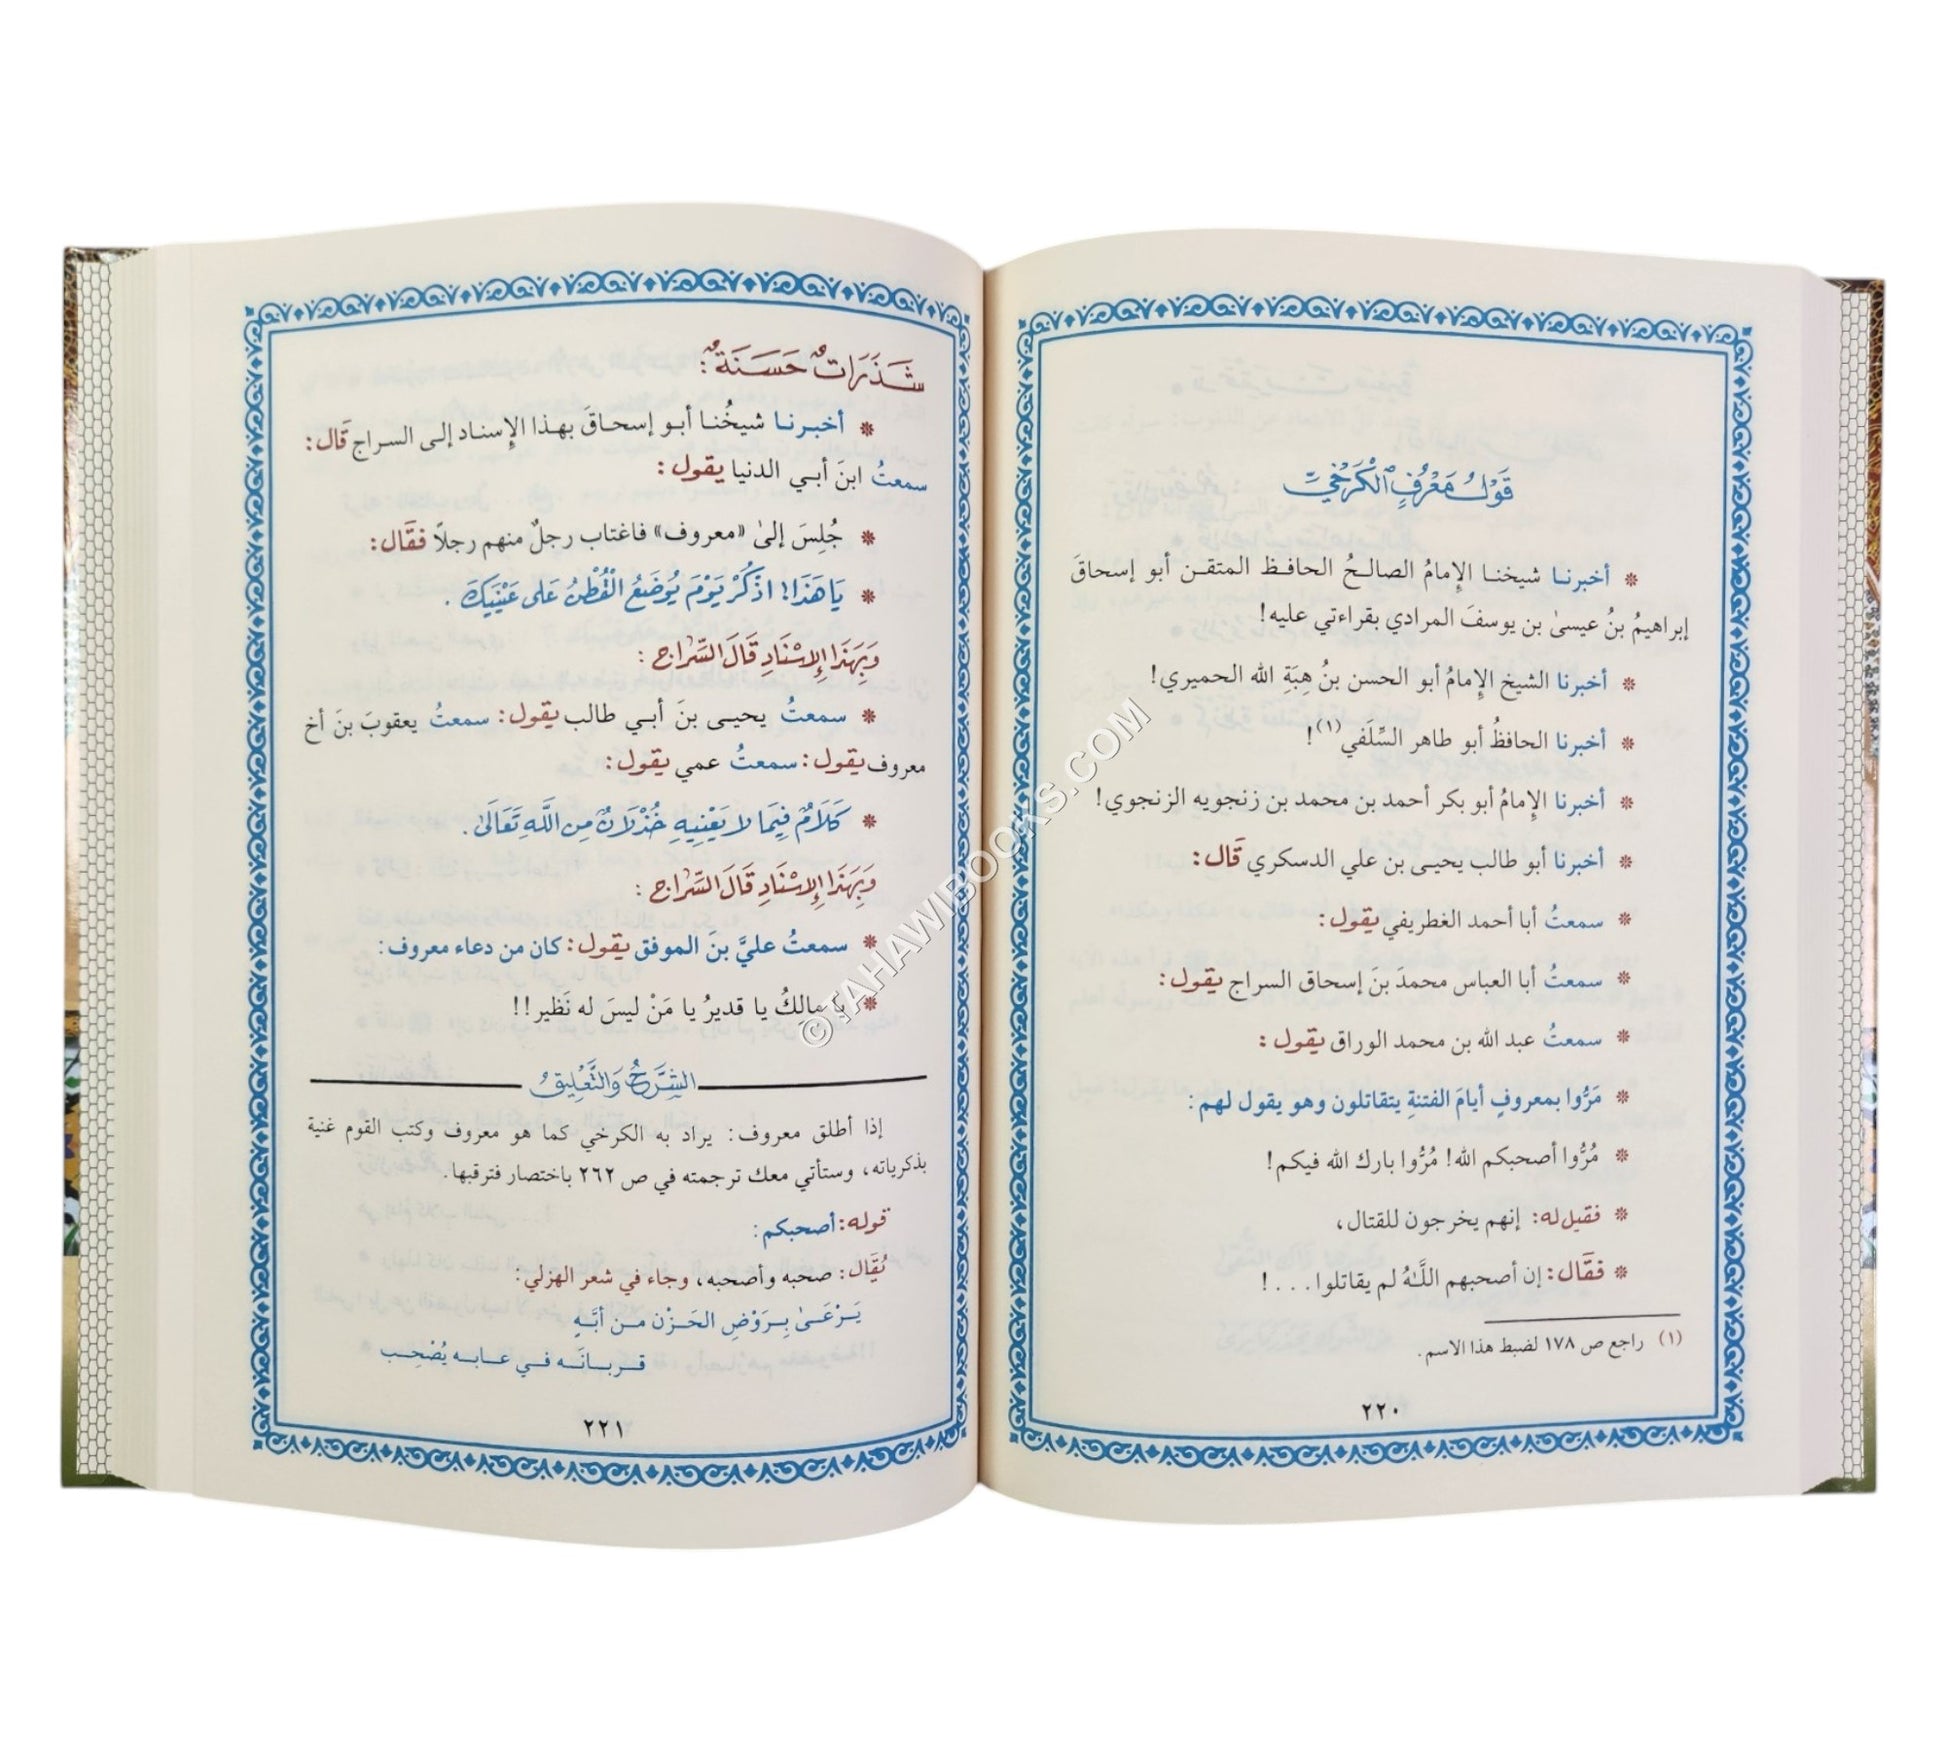 قَوْلُ مَعْرُفٍ الْكَرْخِيِّ
❊ أخبرنا شيخنا الإمامُ الصالحُ الحافظ المتقن أبو إسحاقَ
إبراهيمُ بنُ عيسىٰ بن يوسفَ المرادي بقراءتي عليه!
❊ أخبرنا الشيخ الإمامُ أبو الحسن بنُ هِبَةِ الله الحميري!
❊ أخبرنا الحافظُ أبو طاهر السِّلَفي(١)!
❊ أخبرنا الإمامُ أبو بكر أحمد بن محمد بن زنجويه الزنجوي!
❊ أخبرنا أبو طالب يحيى بن علي الدسكري قَال:
❊ سمعتُ أبا أحمد الغطريفي يقول:
❊ سمعتُ أبا العباس محمدَ بنَ إسحاق السراج يقول:
❊ سمعتُ عبد الله بن محمد الوراق يقول:
❊ مَرُّوا بمعروفٍ أيامَ الفتنةِ يتقاتلون وهو يقول لهم:
❊ مُرُّوا أصحبكم الله! مُرُّوا بارك الله فيكم!
❊ فقيل له: إنهم يخرجون للقتال،
❊ فقَال: إن أصحبهم اللَّهُ لم يقاتلوا...!
(١) راجع ص ١٧٨ لضبط هذا الاسم.
٢٢٠
شَذَرَاتٌ حَسَنَةٌ:
❊ أخبرنا شيخُنا أبو إسحاقَ بهذا الإسناد إلى السراج قَال:
سمعتُ ابنَ أبي الدنيا يقول:
❊ جُلِسَ إلىٰ «معروف» فاغتاب رجلٌ منهم رجلًا فقَال:
❊ يَا هَذَا! اذْكُرْ يَوْمَ يُوضَعُ الْقُطْنُ عَلَى عَيْنَيْكَ.
وَبِهَذَا الإِسْنَادِ قَالَ السَّرَاج:
❊ سمعتُ يحيى بنَ أبي طالب يقول: سمعتُ يعقوبَ بنَ أخ
معروف يقول: سمعتُ عمي يقول:
❊ كَلَامٌ فِيمَا لَا يَعْنِيهِ خُذْلَانٌ مِنَ اللَّهِ تَعَالَىٰ.
وَبِهَذَا الإِسْنَادِ قَالَ السَّرَاج:
❊ سمعتُ عليَّ بنَ الموفق يقول: كان من دعاء معروف:
❊ يا مالكُ يا قديرُ يا مَنْ ليسَ له نَظير!!
الشَّرْحُ وَالتَّعْلِيقُ
إذا أطلق معروف: يراد به الكرخي كما هو معروف وكتب القوم غنية
بذكرياته، وستأتي معك ترجمته في ص ٢٦٢ باختصار فترقبها.
قوله: أصحبكم:
يُقَال: صحبه وأصحبه، وجاء في شعر الهزلي:
يَرْعَىٰ بِرَوْضِ الحَزْنِ من أبَّهِ
قربانَه في عابه يُصْحِب
٢٢١
©TAHAWIBOOKS.COM